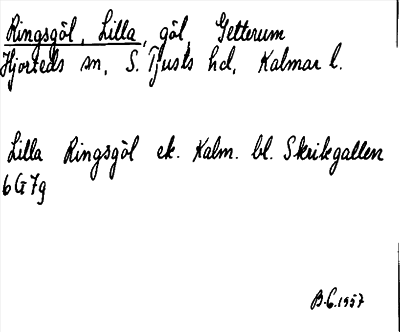 Ringsgöl, Lilla, göl, Getterum
Hjorteds sn, S. Tjusts hd, Kalmar l.
Lilla Ringsgöl ek. Kalm. bl. Skrikegallen
6G7g
B.C. 1957